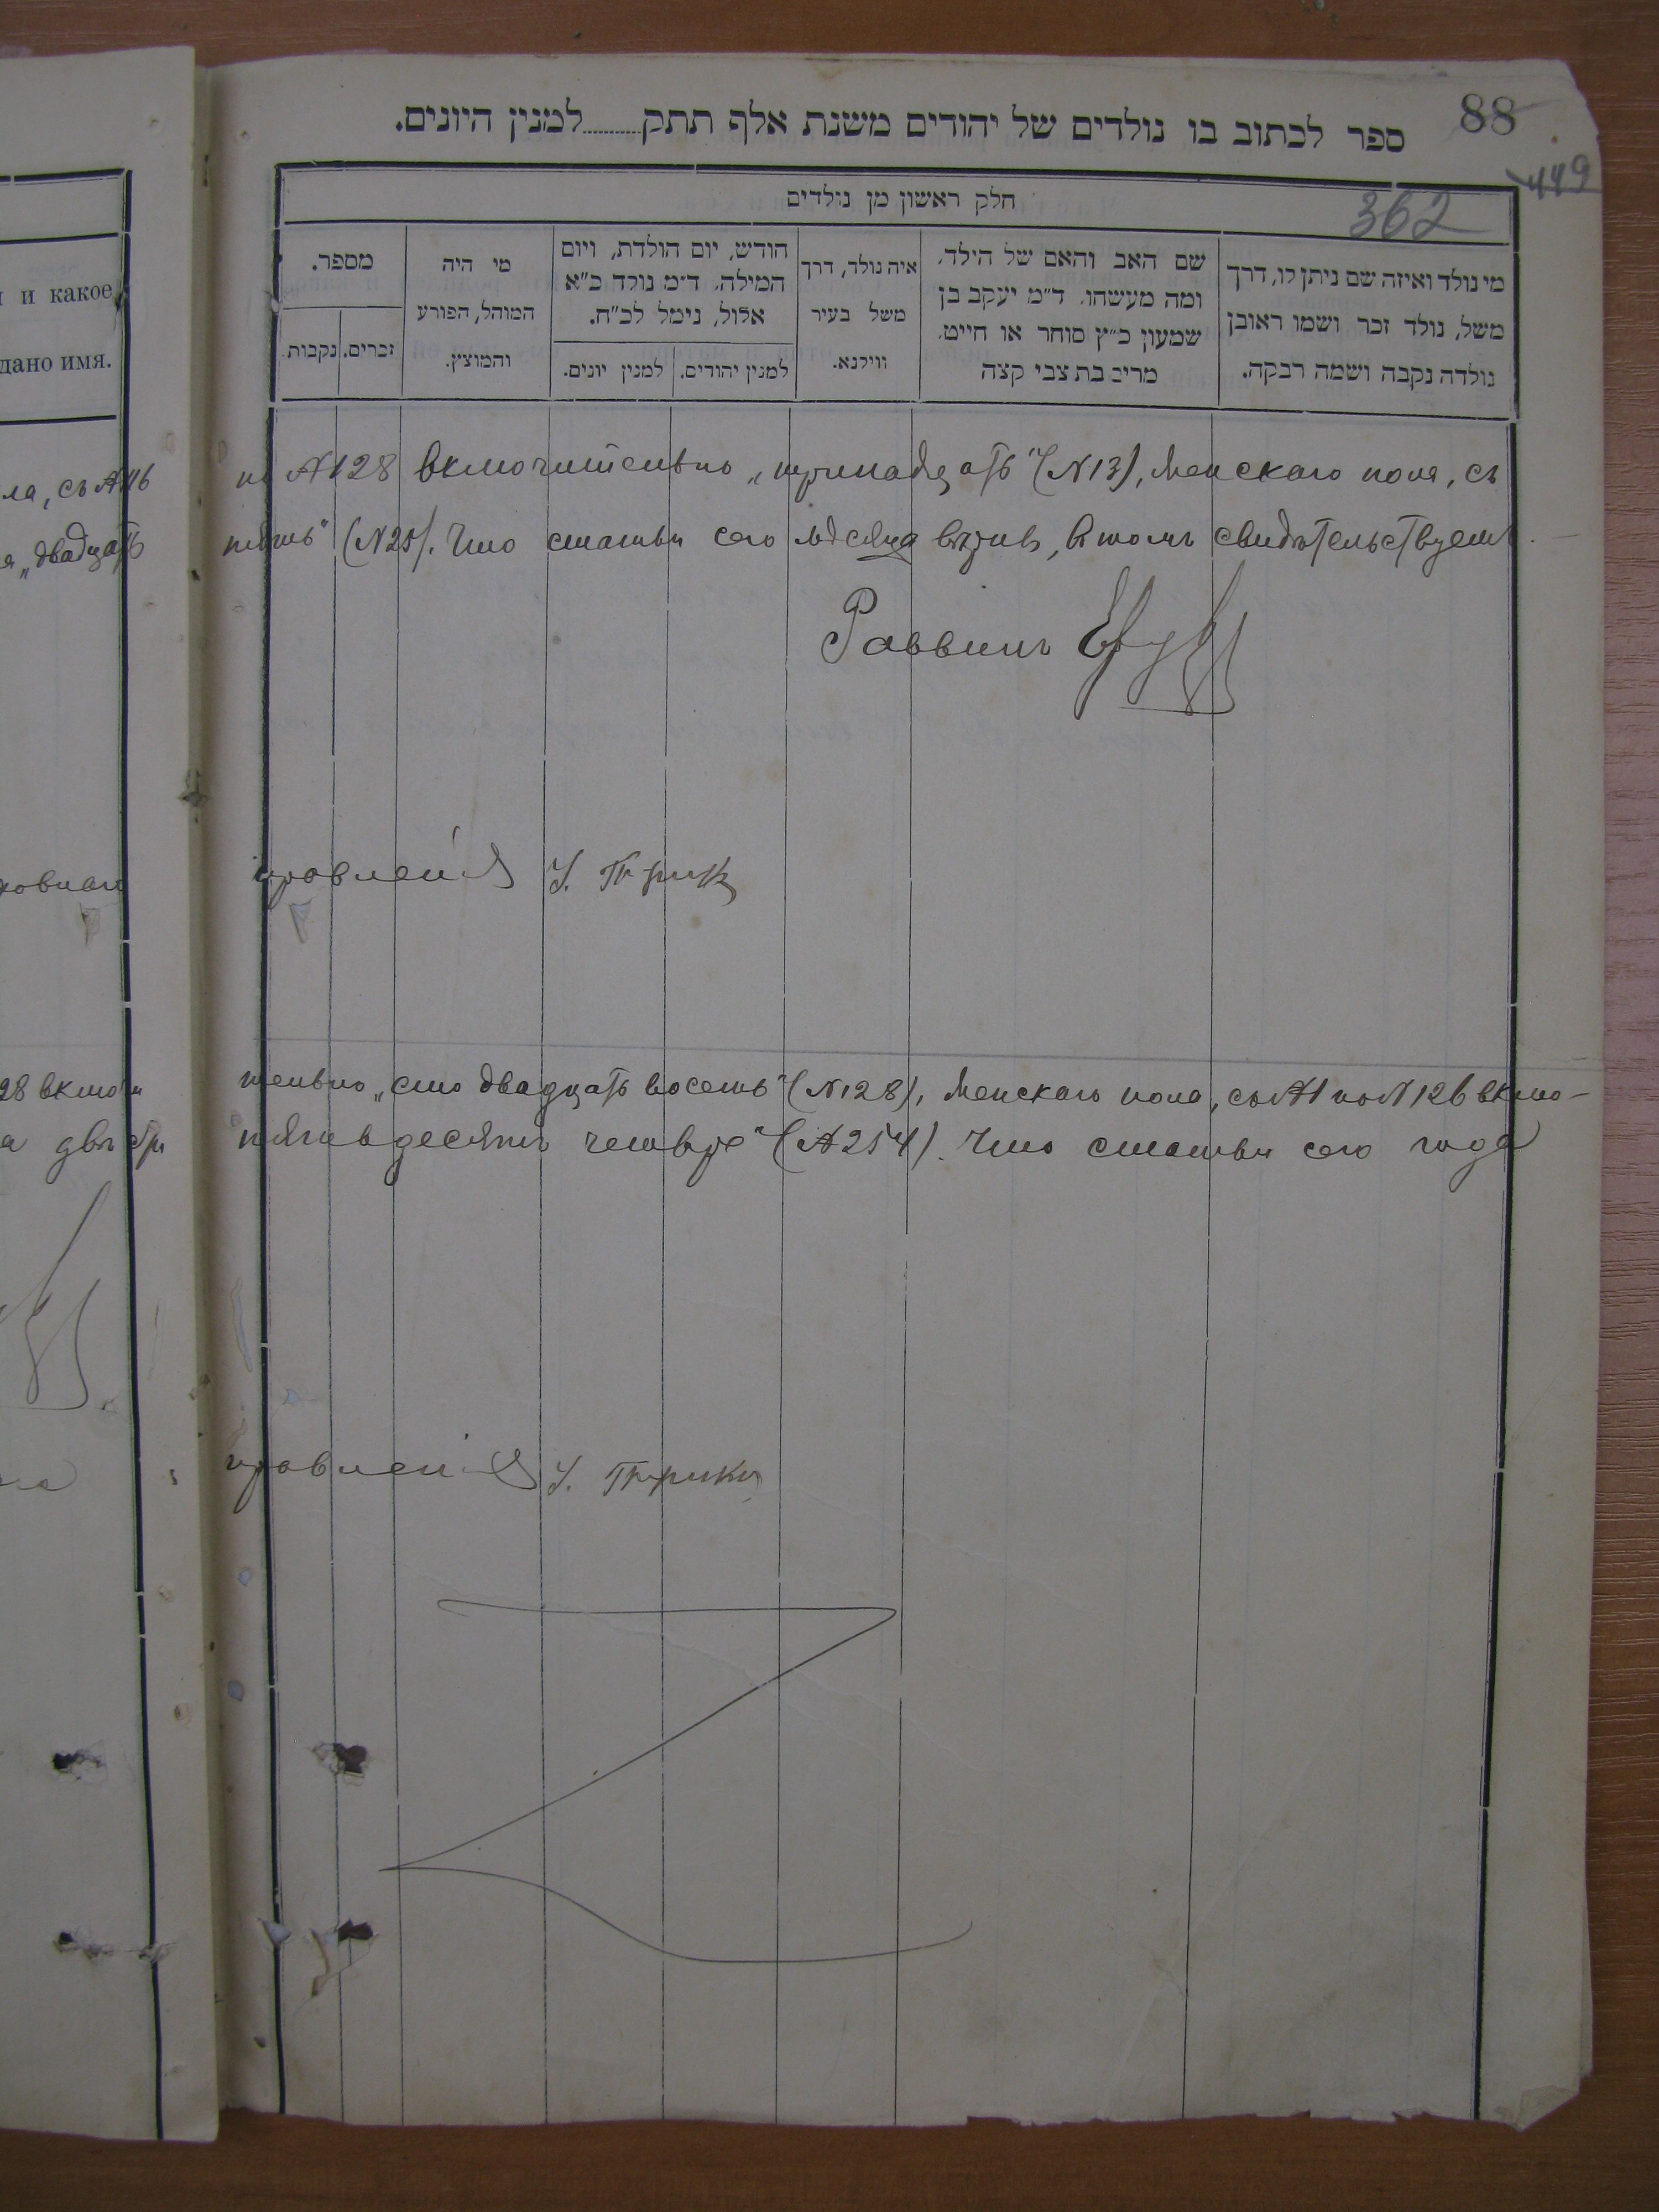 88
ספר לכתוב בו נולדים של יהודים משנת אלף תתק........למנין היונים.
449
חלק ראשון מן נולדים
362
מי נולד ואיזה שם ניתן לו, דרך
משל, נולד זכר ושמו ראובן
נולדה נקבה ושמה רבקה.
שם האב והאם של הילד,
ומה מעשהו. ד"מ יעקב בן
שמעון כ"ץ סוחר או חייט.
מרים בת צבי קצה
איה נולד, דרך
משל בעיר
ווילנא.
חודש, יום הולדת, ויום
המילה. ד"מ נולד כ"א
אלול, נימל לכ"ח.
למנין יהודים.
למנין יונים.
מי היה
המוהל, הפורע
והמוצץ.
מספר.
זכרים.
נקבות.
и какое
дано имя.
ла, съ №116
"двадцать
по №128 включительно „тринадцать" (№13), женскаго пола, съ
пять" (№25). Что статьи сего мѣсяца вѣрны, въ томъ свидѣтельствуетъ
Раввинъ
правленія
28 включи
а двѣсти
тельно „сто двадцать восемь" (№128), женскаго пола, съ №1 по №126 вклю-
пятьдесятъ четыре" (№254). Что статьи сего года
правленія